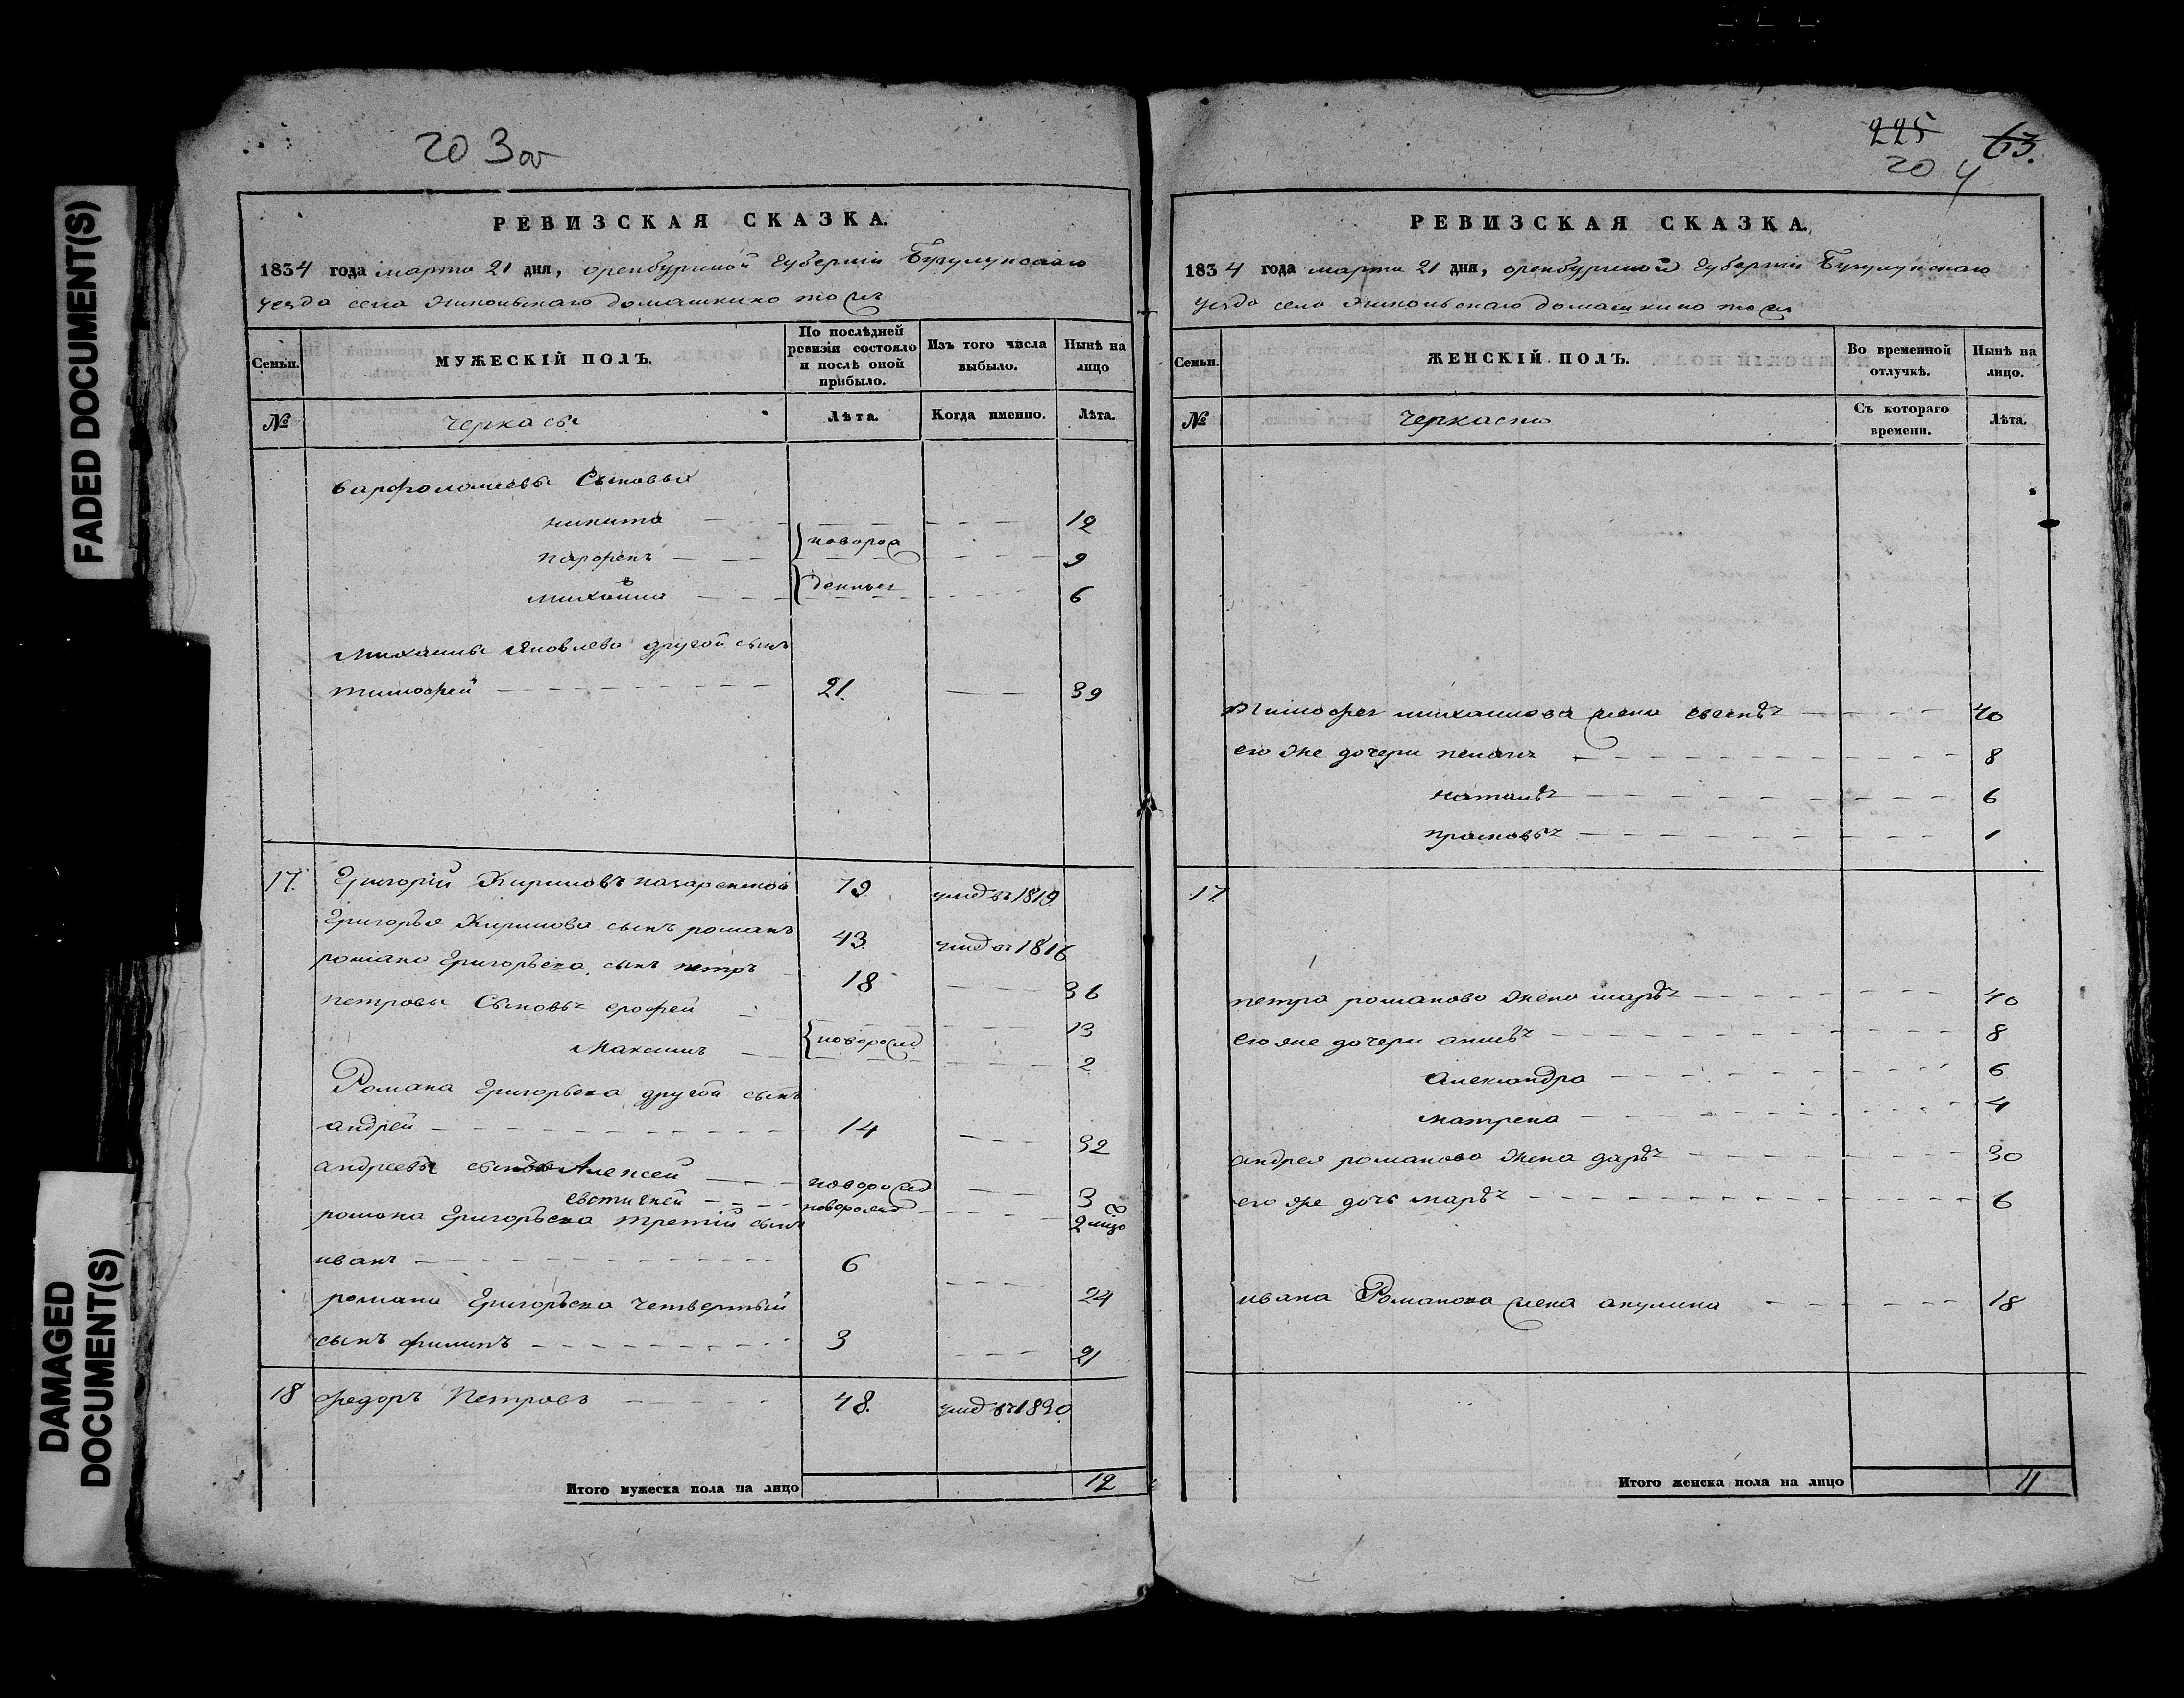 FADED DOCUMENT(S)
DAMAGED
DOCUMENT(S)
203 об
РЕВИЗСКАЯ СКАЗКА.
1834 года марта 21 дня, оренбургской губернии Бугулунскаго
уезда села домашкино тожъ
Семьи.
МУЖЕСКІЙ ПОЛЪ.
По послѣдней ревизіи состояло и послѣ оной прибыло.
Изъ того числа выбыло.
Нынѣ на лицо
№
черкасы
Лѣта.
Когда именно.
Лѣта.
варфоломеевы Сыновья
никита 12
парфенъ новоро 9
михаила жденные 6
михаилы Яковлева другой сынъ
тимофей 21. 39
17. Григорий Кириловъ назаренской 79. умеръ въ 1819.
Григорья Кирилова сынъ романъ 43. умеръ въ 1816
романа Григорьева сынъ петръ 18 36
петровы Сыновья ерофей 13
Максимъ новорожд 2
Романа Григорьева другой сынъ
андрей 14 32
андреевы сыновья Алексей новорожд 3
евстигней новорожд 2
романа Григорьева третий сынъ
иванъ 6 24
романа Григорьева четвертый
сынъ филипъ 3 21
18 федоръ Петровъ 48. умеръ въ 1830.
Итого мужеска пола на лицо 12
225 63.
204
РЕВИЗСКАЯ СКАЗКА.
1834 года марта 21 дня, оренбургской губернии Бугулунскаго
уезда села домашкино тожъ
Семьи.
ЖЕНСКІЙ ПОЛЪ.
Во временной отлучкѣ.
Нынѣ на лицо.
№
черкаски
Съ котораго времени.
Лѣта.
тимофея михаилова жена 40
его же дочери пелагея 8
наталья 6
прасковья 1
17
петра романова жена марья 40
его же дочери 8
Александра 6
матрена 4
андрея романова жена дарья 30
его же дочь марья 6
ивана Романова жена акулина 18
Итого женска пола на лицо 11